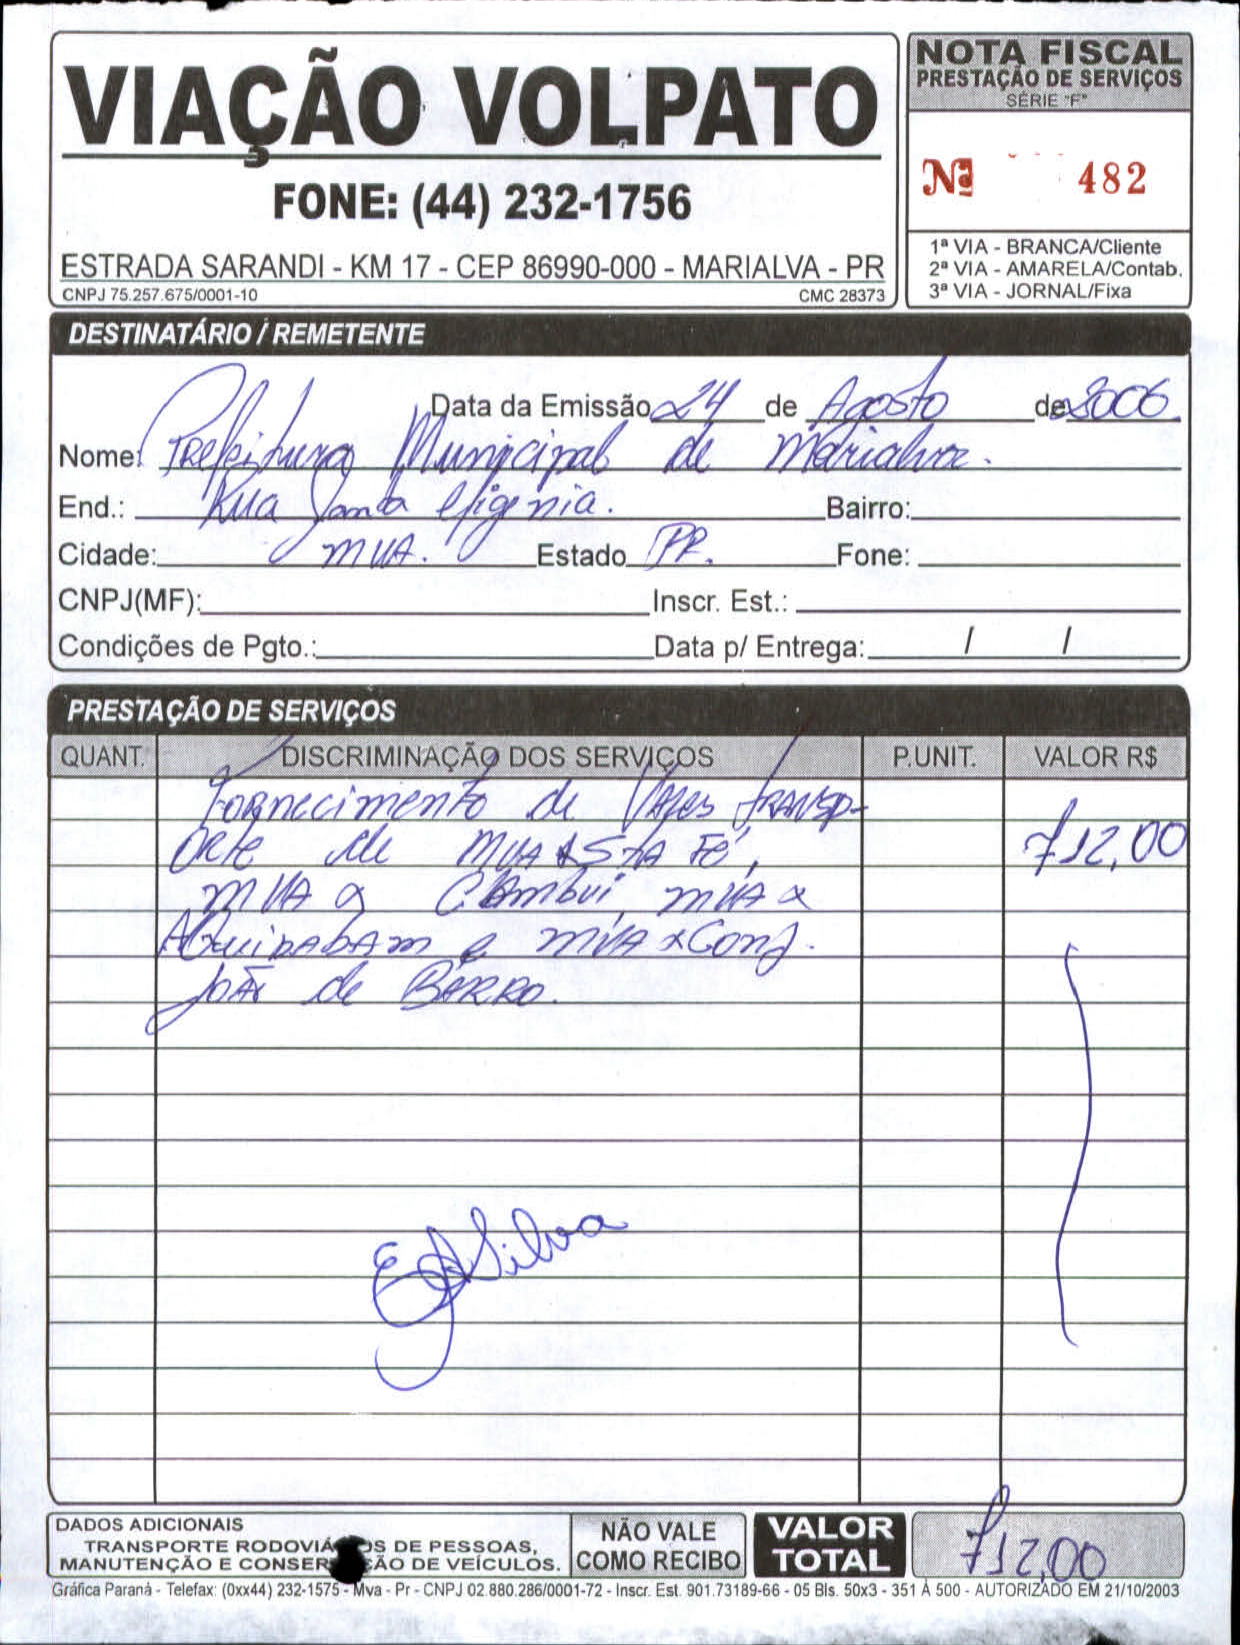 VIAÇÃO VOLPATO
FONE: (44) 232-1756
ESTRADA SARANDI - KM 17 - CEP 86990-000 - MARIALVA - PR
CNPJ 75.257.675/0001-10 CMC 28373
NOTA FISCAL
PRESTAÇÃO DE SERVIÇOS
SÉRIE "F"
Nº 482
1ª VIA - BRANCA/Cliente
2ª VIA - AMARELA/Contab.
3ª VIA - JORNAL/Fixa
DESTINATÁRIO / REMETENTE
Data da Emissão 24 de Agosto de 2006
Nome: Prefeitura Municipal de Marialva.
End.: Rua Santa Efigenia. Bairro:
Cidade: MVA. Estado PR. Fone:
CNPJ(MF): Inscr. Est.:
Condições de Pgto.: Data p/ Entrega: / /
PRESTAÇÃO DE SERVIÇOS
QUANT. DISCRIMINAÇÃO DOS SERVIÇOS P.UNIT. VALOR R$
Fornecimento de Vales Transp-
orte de MVA x STA Fé, 712,00
MVA x Cambuí, MVA x
Aquidabam e MVA x Conj.
João de Barro.
EASilva
DADOS ADICIONAIS
TRANSPORTE RODOVIÁ OS DE PESSOAS,
MANUTENÇÃO E CONSER ÃO DE VEÍCULOS.
NÃO VALE
COMO RECIBO
VALOR
TOTAL
712,00
Gráfica Paraná - Telefax: (0xx44) 232-1575 - Mva - Pr - CNPJ 02.880.286/0001-72 - Inscr. Est. 901.73189-66 - 05 Bls. 50x3 - 351 À 500 - AUTORIZADO EM 21/10/2003